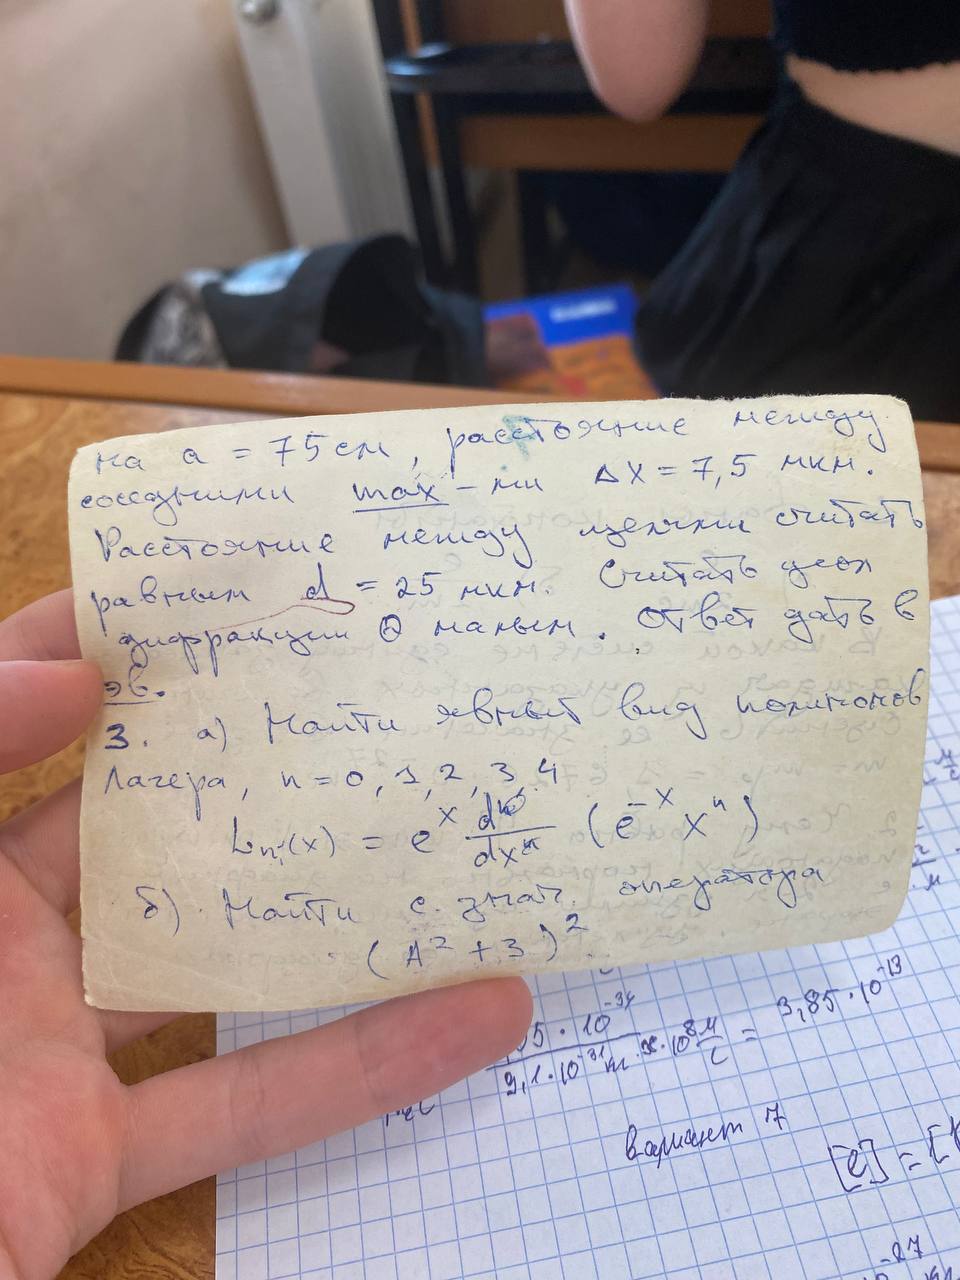 на a = 75 см, расстояние между
соседними max-ми Δx = 7,5 мкм.
Расстояние между щелями считать
равным d = 25 мкм. Считать угол
дифракции Θ малым. Ответ дать в
эв.
3. а) Найти явный вид полиномов
Лагера, n = 0, 1, 2, 3, 4
Lₙ(x) = eˣ dⁿ/dxⁿ (e⁻ˣ xⁿ)
б). Найти с. знач. оператора
(A² + 3)².
10⁻³⁴ / 9,1·10⁻³¹ кг · 10⁸ м/с = 3,85·10⁻¹³
вариант 7
[e] = [